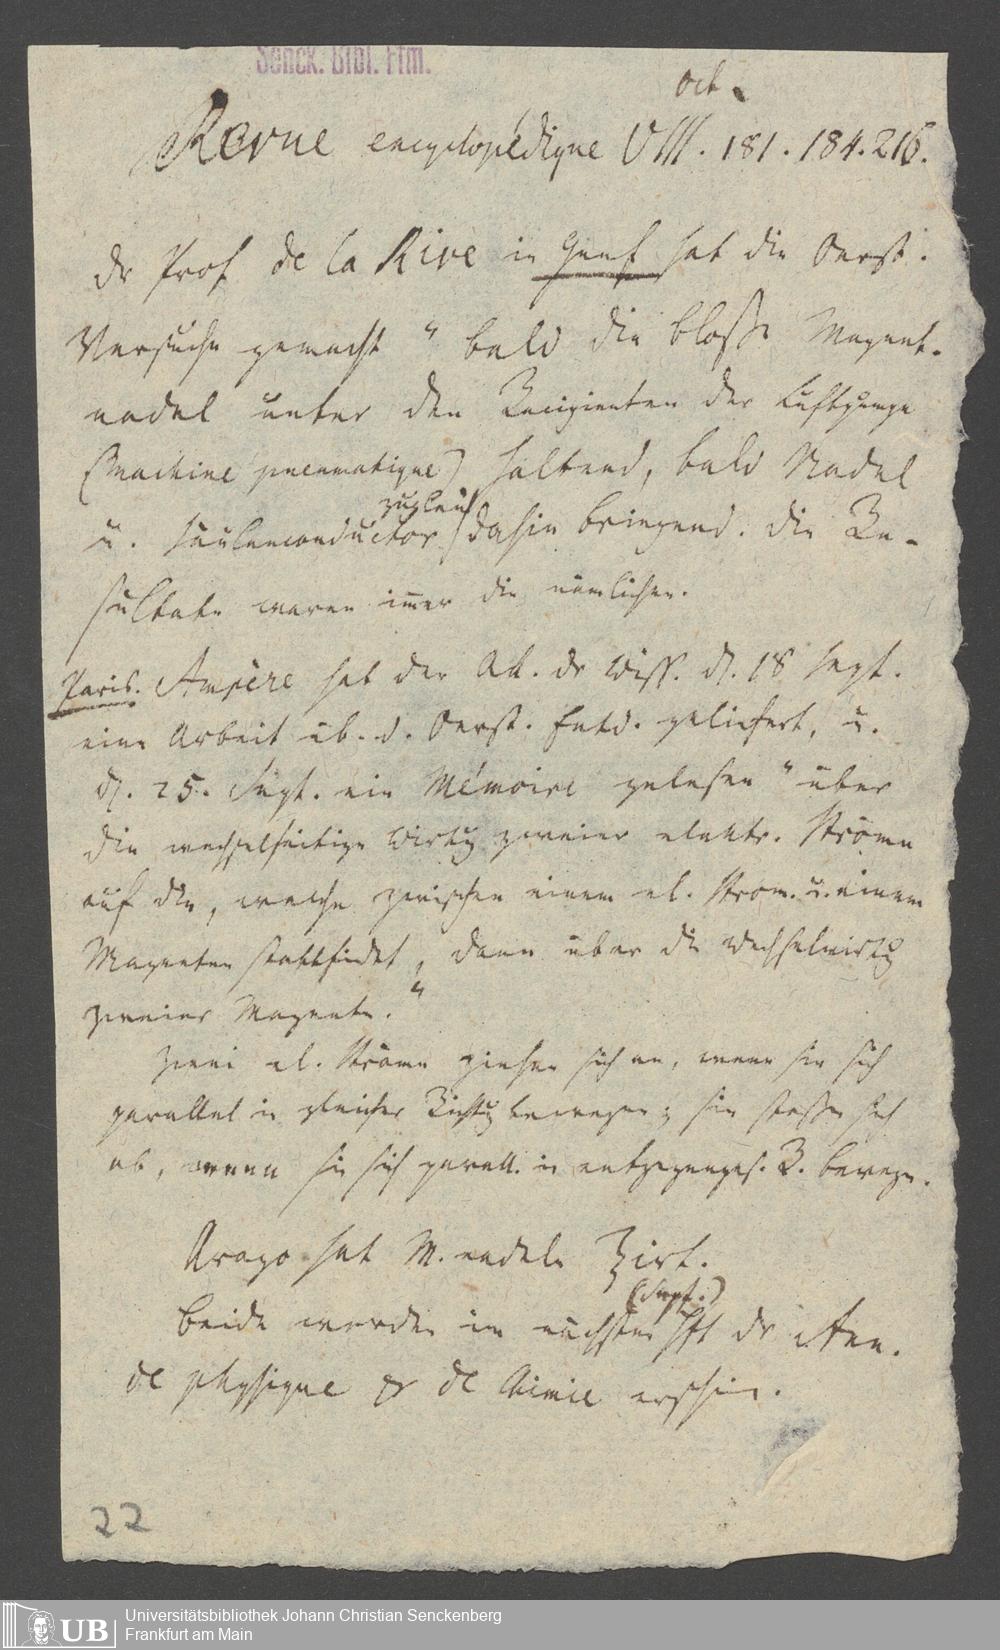 Senck. Bibl. Ffm.
Oct.
Revue encyclopédique VIII. 181. 184. 216.
Dr Prof de la Rive in Genf hat die Oerst.
Versuche gemacht " bald die bloße Magnet-
nadel unter den Recipienten der Luftpumpe
(Machine pneumatique) haltend, bald Nadel
zugleich
u. Säulenconductor dahin bringend. Die Re-
sultate waren immer die nämlichen.
Paris. Ampère hat der Ak. dr Wiss. d. 18 Sept.
eine Arbeit üb. d. Oerst. Entd. geliefert, u.
d. 25. Sept. ein Mémoire gelesen " über
die wechselseitige Wirkg zweier elektr. Ströme
auf die, welche zwischen einem el. Strom. u. einem
Magneten stattfindet, dann über die Wechselwirkg
zweier Magnete. "
Zwei el. Ströme ziehen sich an, wenn sie sich
parallel in gleicher Richtg bewegen; sie stoßen sich
ab, wenn sie sich parall. in entgegenges. R. bewegn.
Arago hat M. nadeln
(Sept.)
beide werden im nächsten Hft dr Ann.
de physique & de Chimie erschein.
22
UB
Universitätsbibliothek Johann Christian Senckenberg
Frankfurt am Main